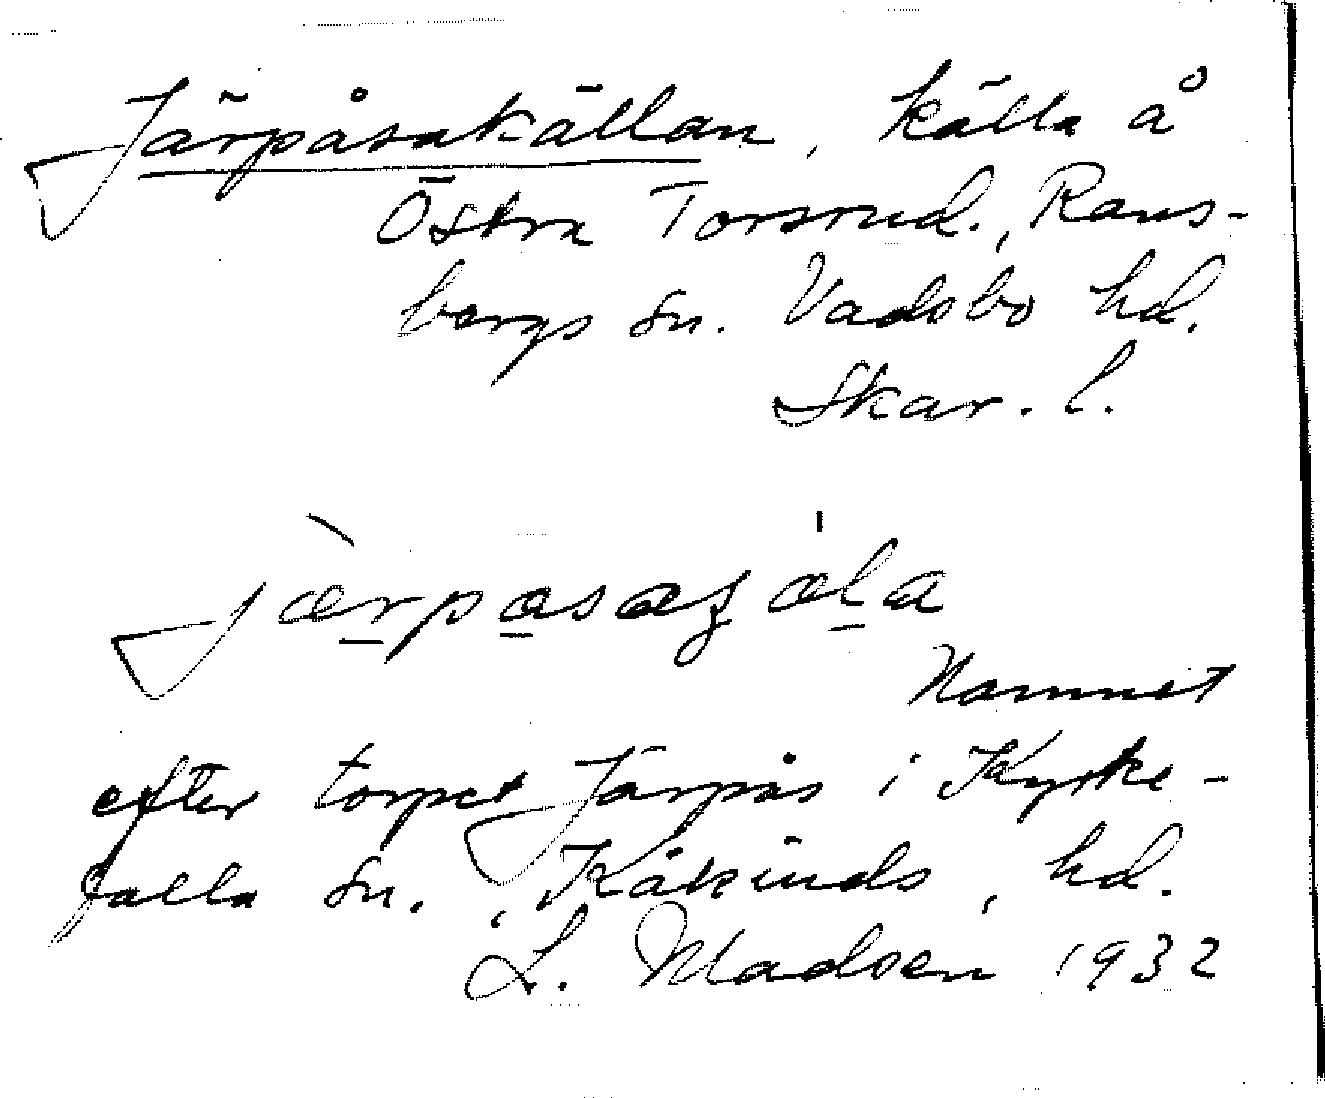 Järpåsakällan, källa å
Östra Torsrud., Rans-
bergs sn. Vadsbo hd.
Skar. l.
jærpasaʒæla
Namnet
efter torpet Järpås i Kyrke-
falla sn., Kåkinds, hd.
L. Madsen 1932